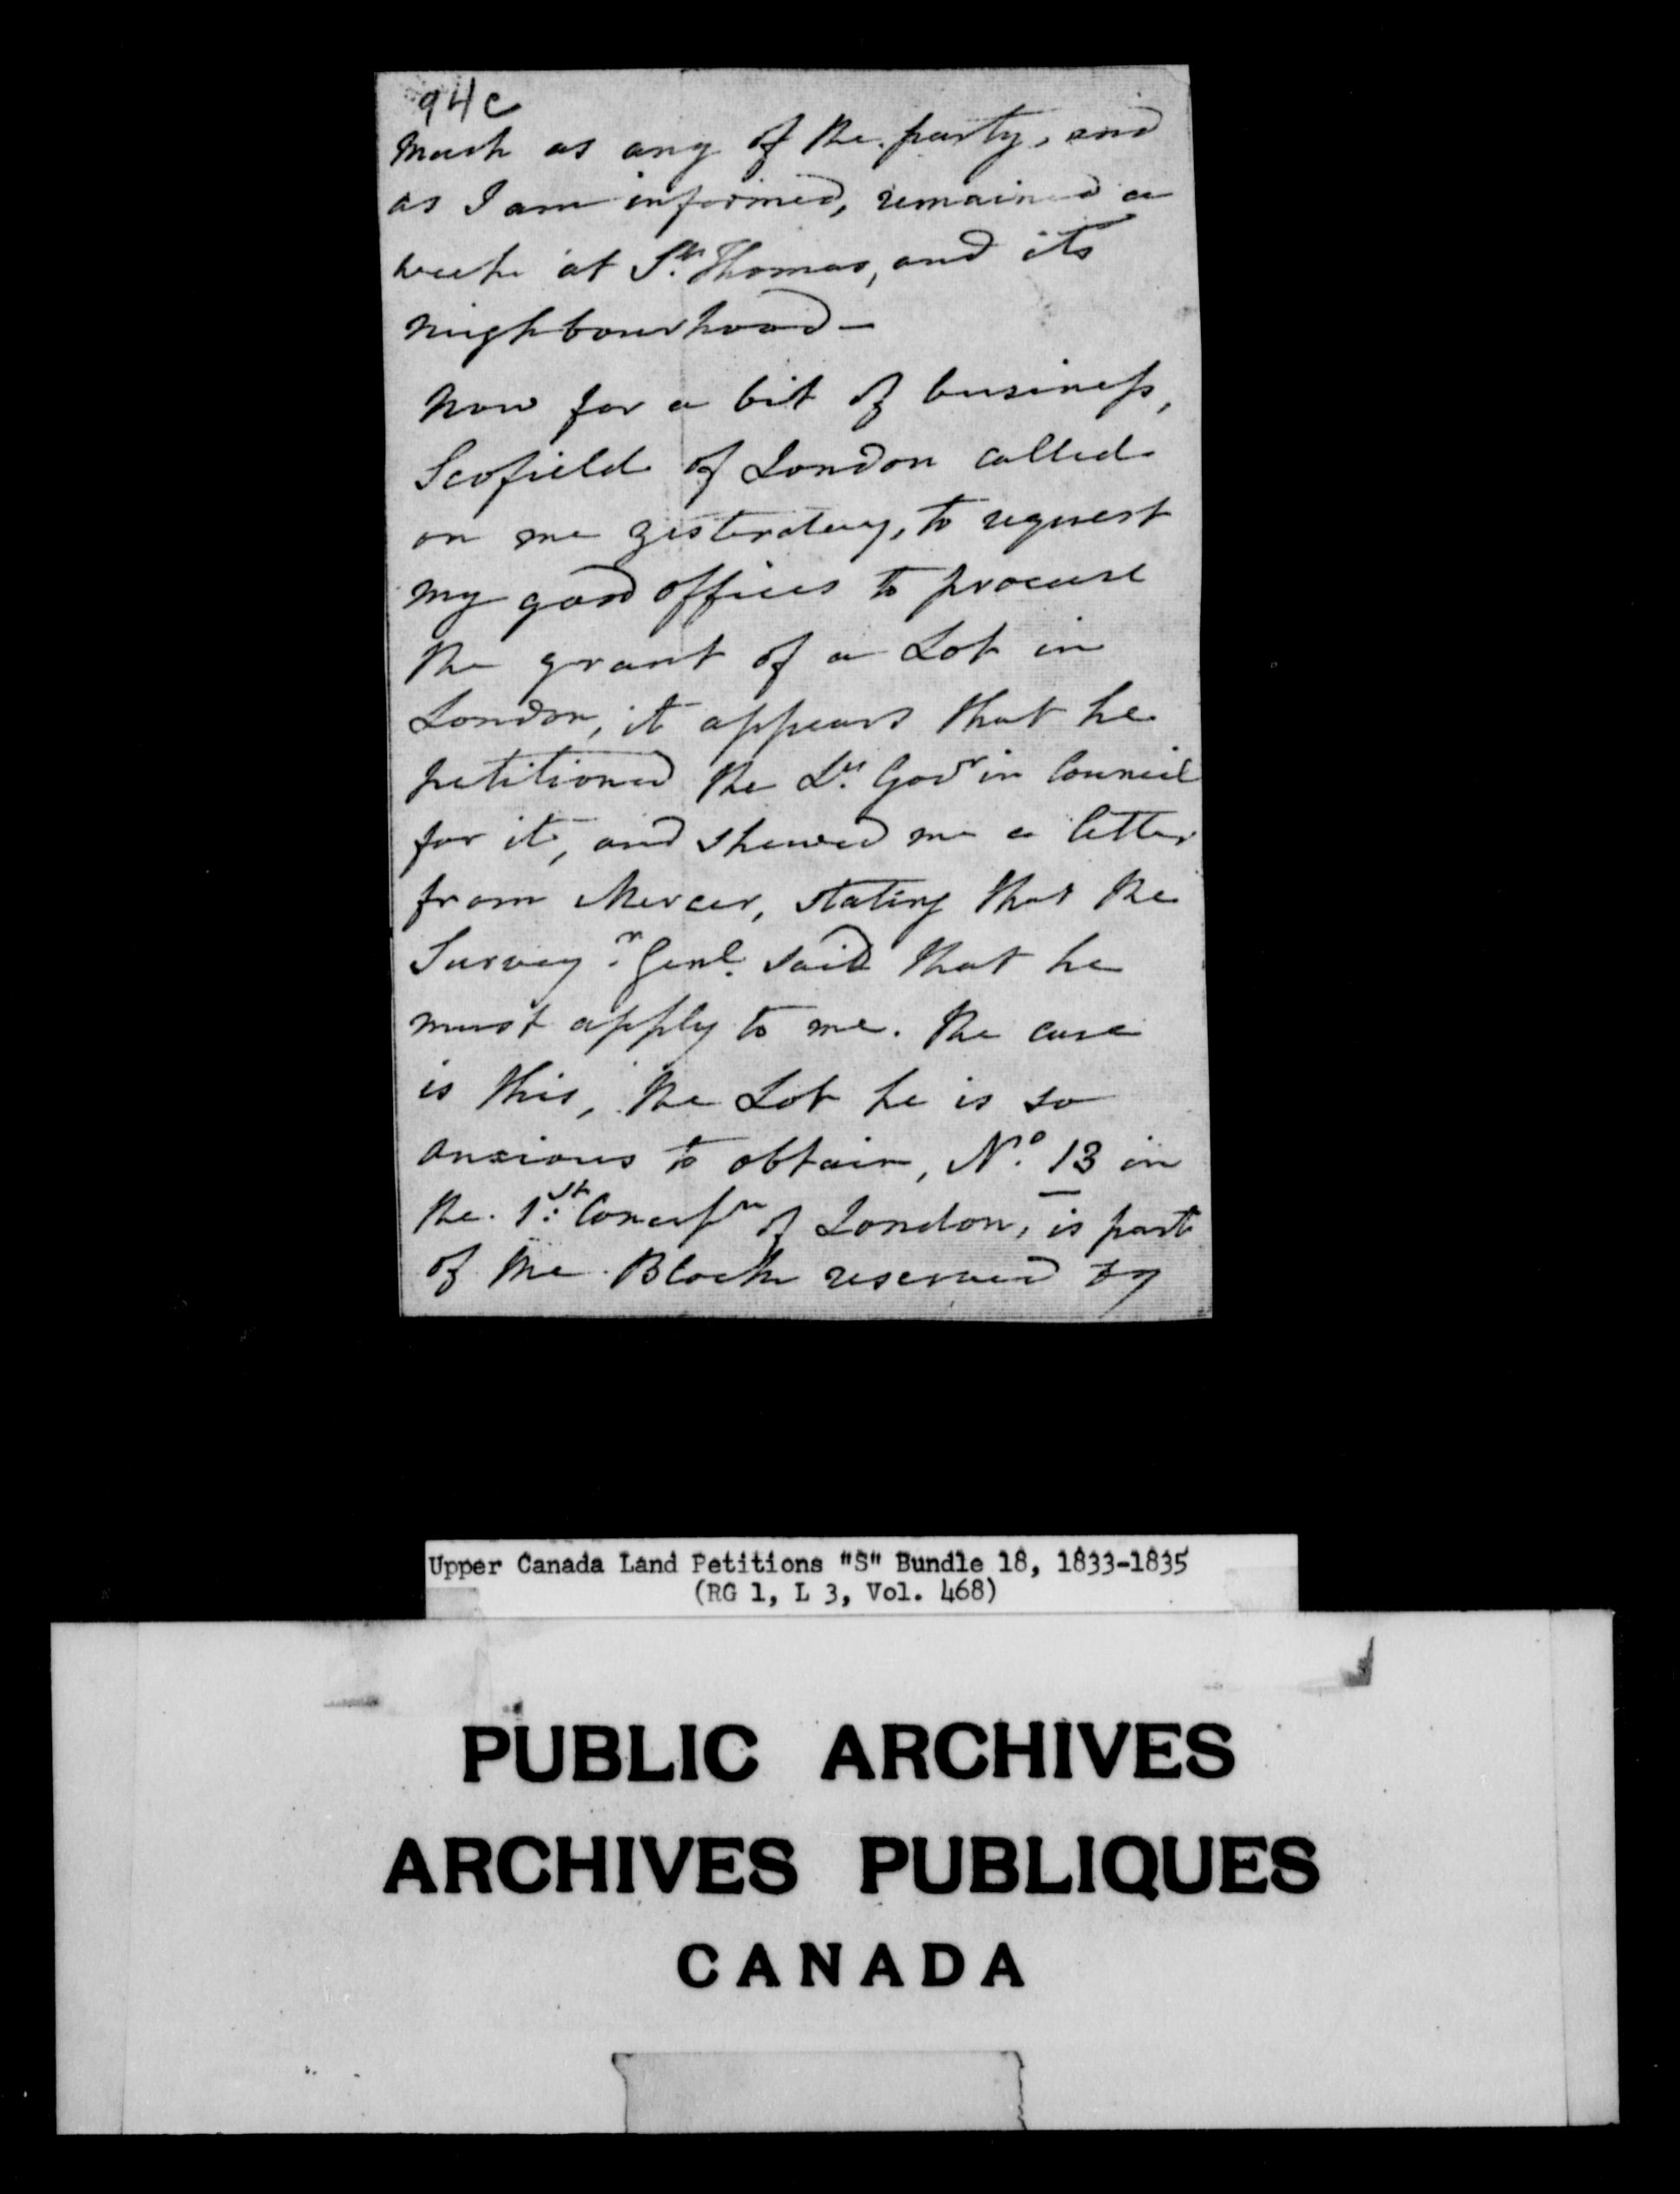 94c
much as any of the party, and
as I am informed, remained a
week at St. Thomas, and its
neighbourhood —
Now for a bit of business,
Scofield of London called
on me yesterday, to request
my good offices to procure
the grant of a Lot in
London, it appears that he
petitioned the Lt. Govr in Council
for it, and shewed me a letter
from Mercer, stating that the
Surveyr. Genl. said that he
must apply to me. The case
is this, the Lot he is so
anxious to obtain, No. 13 in
the 1st. Concessn of London, is part
of the Block reserved by
Upper Canada Land Petitions "S" Bundle 18, 1833-1835
(RG 1, L 3, Vol. 468)
PUBLIC ARCHIVES
ARCHIVES PUBLIQUES
CANADA